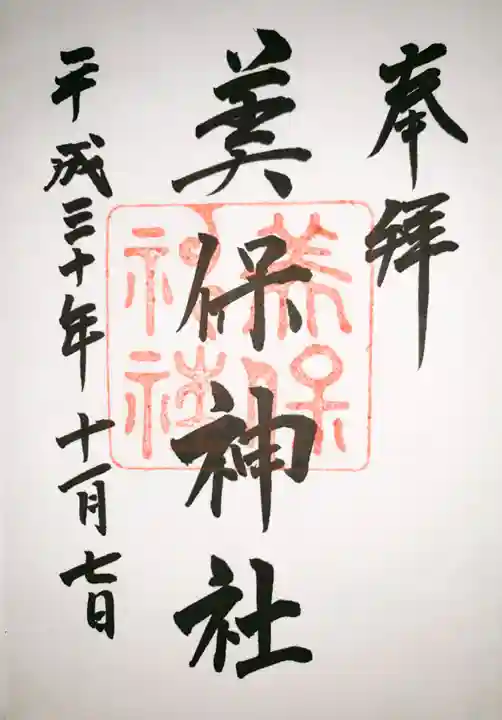 奉拝
美保神社
美保
神社
平成三十年 十一月七日